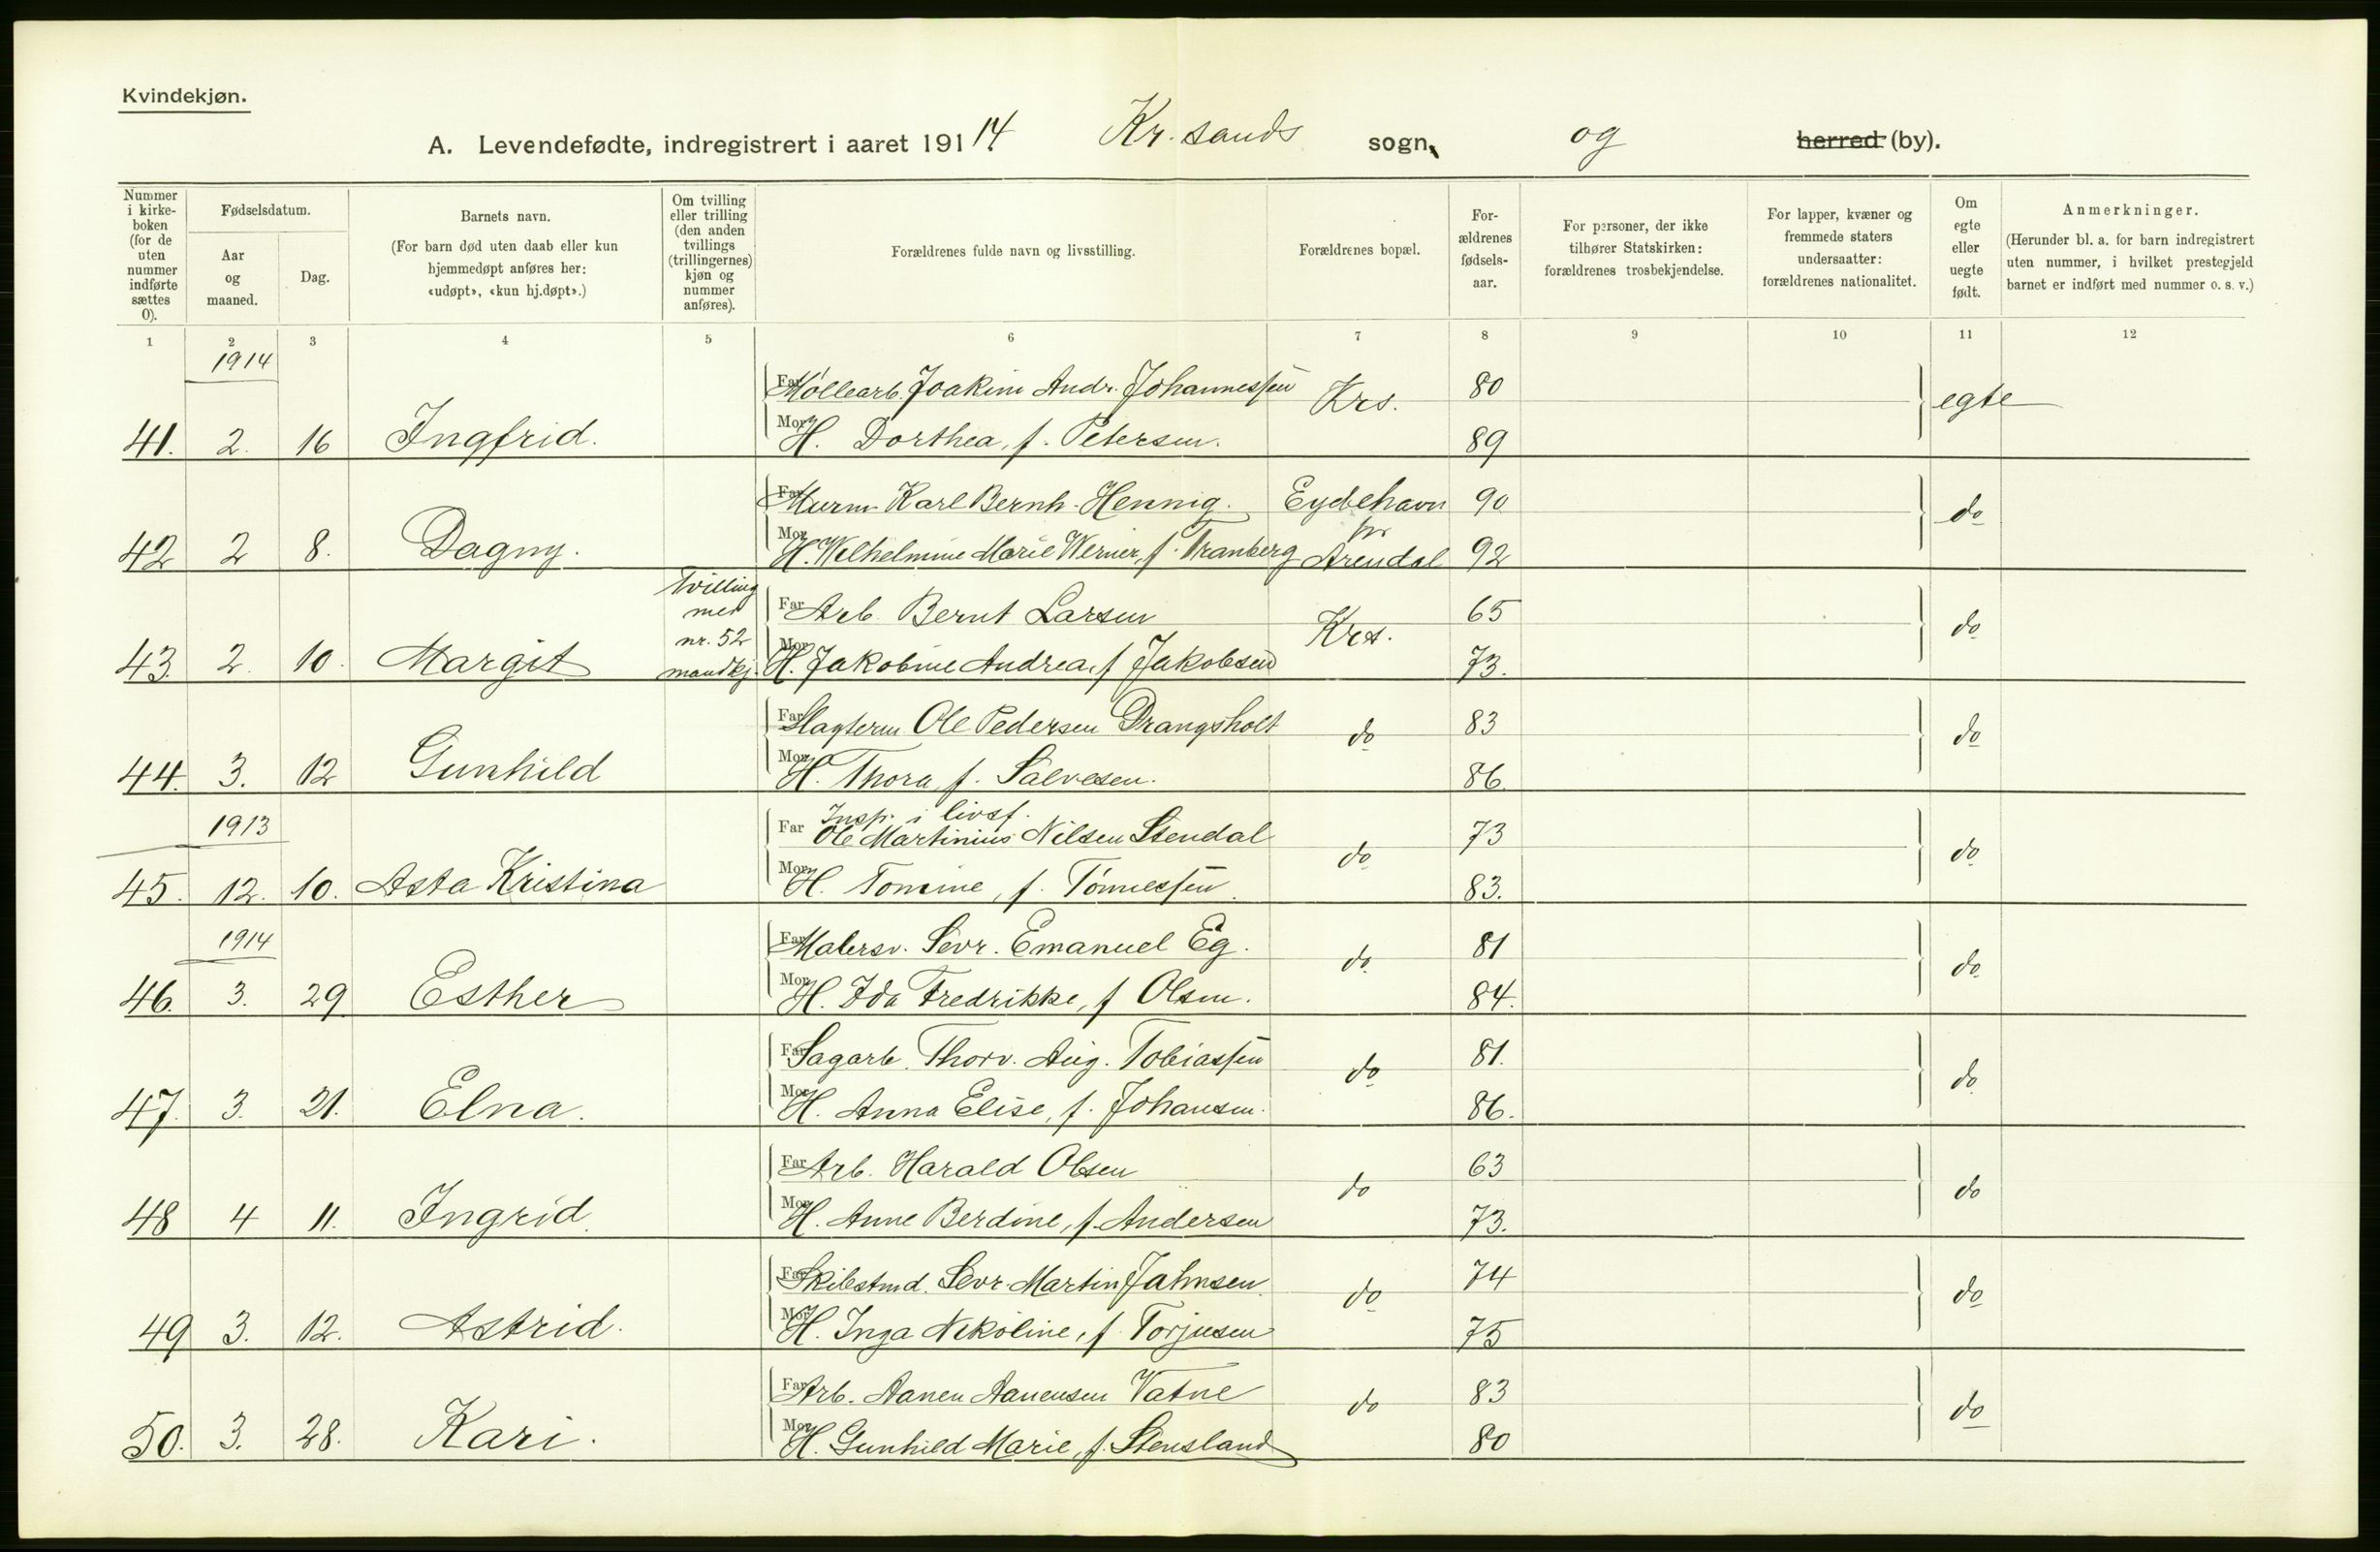 Kvindekjøn.
A. Levendefødte, indregistrert i aaret 19114 Kr. sands sogn, og herred (by).
Nummer i kirke-boken (for de uten nummer indførte sættes 0).
Fødselsdatum.
Aar og maaned.
Dag.
Barnets navn.
(For barn død uten daab eller kun hjemmedøpt anføres her: «udøpt», «kun hj.døpt».)
Om tvilling eller trilling (den anden tvillings (trillingernes) kjøn og nummer anføres).
Forældrenes fulde navn og livsstilling.
Forældrenes bopæl.
For-ældrenes fødsels-aar.
For personer, der ikke tilhører Statskirken: forældrenes trosbekjendelse.
For lapper, kvæner og fremmede staters undersaatter: forældrenes nationalitet.
Om egte eller uegte født.
Anmerkninger.
(Herunder bl. a. for barn indregistrert uten nummer, i hvilket prestegjeld barnet er indført med nummer o. s. v.)
1 2 3 4 5 6 7 8 9 10 11 12
1914
Far Møllearb. Joakim Andr. Johannessen Krs. 80 egte
41. 2. 16 Ingfrid. Mor H. Dorthea, f. Petersen. 89
Far Murm. Karl Bernh. Hennig. Eydehavn 90 do
pr
42 2 8. Dagny. Mor H. Wilhelmine Marie Werner, f. Tranberg Arendal 92
Tvilling
med Far Arb. Bernt Larsen Krs. 65 do
nr. 52
43. 2. 10. Margit mandkj. Mor H. Jakobine Andrea, f Jakobsen 73.
Far Slagterm Ole Pedersen Drangsholt do 83 do
44. 3. 12 Gunhild Mor H. Thora, f. Salvesen. 86.
1913 Insp. i livsf.
Far Ole Martinius Nilsen Stendal do 73 do
45. 12. 10. Asta Kristina Mor H. Tomine, f. Tønnessen. 83.
1914 Far Malersv. Sevr. Emanuel Eg. do 81 do
46. 3. 29. Esther Mor H. Ida Fredrikke, f Olsen. 84.
Far Sagarb. Thorv. Aug. Tobiassen do 81. do
47. 3. 21. Elna. Mor H. Anna Elise, f. Johansen. 86.
Far Arb. Harald Olsen do 63 do
48 4 11. Ingrid. Mor H. Anne Berdine, f. Andersen 73.
Far Skibstmd. Sevr. Martin Jahnsen. do 74 do
49 3. 12. Astrid. Mor H. Inga Nikoline, f. Torjusen 75
Far Arb. Aanen Aanensen Vatne do 83 do
50. 3. 28. Kari. Mor H. Gunhild Marie, f. Stensland 80